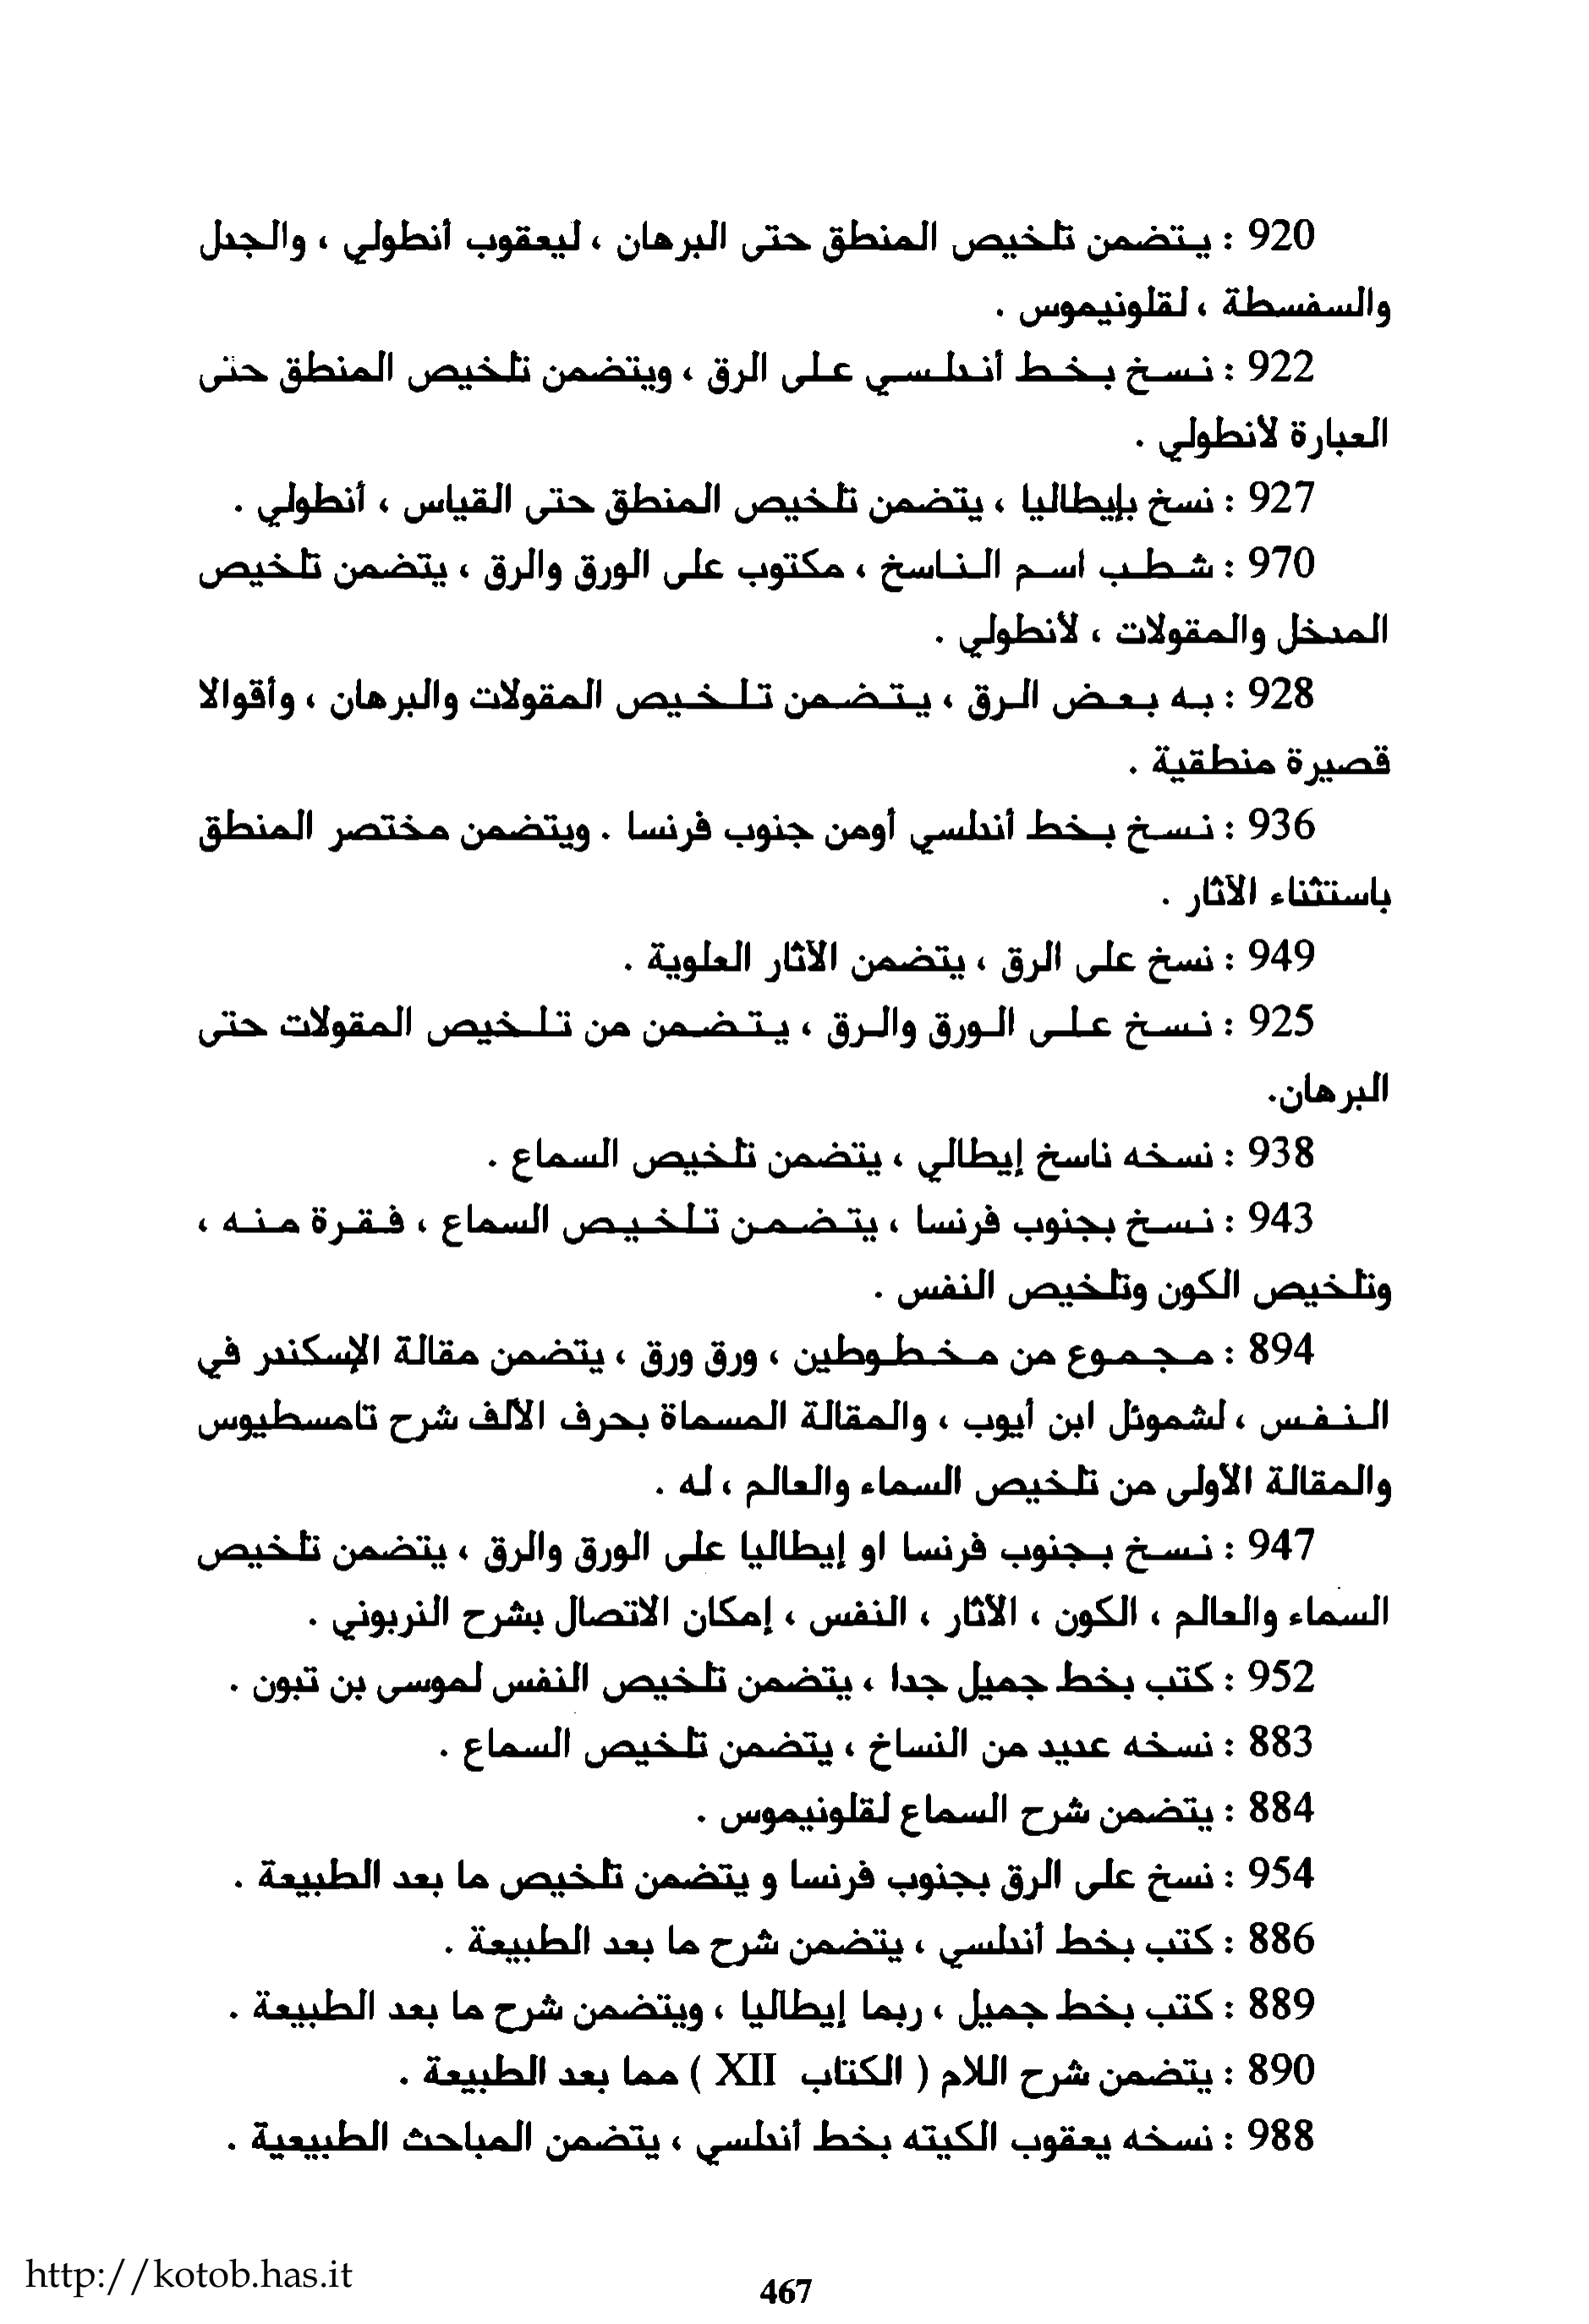 920 : يتضمن تلخيص المنطق حتى البرهان ، ليعقوب أنطولي ، والجدل
والسفسطة ، لقلونيموس .
922 : نسخ بخط أندلسي على الرق ، ويتضمن تلخيص المنطق حتى
العبارة لأنطولي .
927 : نسخ بإيطاليا ، يتضمن تلخيص المنطق حتى القياس ، أنطولي .
970 : شطب اسم الناسخ ، مكتوب على الورق والرق ، يتضمن تلخيص
المدخل والمقولات ، لأنطولي .
928 : به بعض الرق ، يتضمن تلخيص المقولات والبرهان ، وأقوالا
قصيرة منطقية .
936 : نسخ بخط أندلسي أومن جنوب فرنسا . ويتضمن مختصر المنطق
باستثناء الآثار .
949 : نسخ على الرق ، يتضمن الآثار العلوية .
925 : نسخ على الورق والرق ، يتضمن من تلخيص المقولات حتى
البرهان.
938 : نسخه ناسخ إيطالي ، يتضمن تلخيص السماع .
943 : نسخ بجنوب فرنسا ، يتضمن تلخيص السماع ، فقرة منه ،
وتلخيص الكون وتلخيص النفس .
894 : مجموع من مخطوطين ، ورق ورق ، يتضمن مقالة الإسكندر في
النفس ، لشموئل ابن أيوب ، والمقالة المسماة بحرف الألف شرح تامسطيوس
والمقالة الأولى من تلخيص السماء والعالم ، له .
947 : نسخ بجنوب فرنسا او إيطاليا على الورق والرق ، يتضمن تلخيص
السماء والعالم ، الكون ، الآثار ، النفس ، إمكان الاتصال بشرح النربوني .
952 : كتب بخط جميل جدا ، يتضمن تلخيص النفس لموسى بن تبون .
883 : نسخه عديد من النساخ ، يتضمن تلخيص السماع .
884 : يتضمن شرح السماع لقلونيموس .
954 : نسخ على الرق بجنوب فرنسا و يتضمن تلخيص ما بعد الطبيعة .
886 : كتب بخط أندلسي ، يتضمن شرح ما بعد الطبيعة .
889 : كتب بخط جميل ، ربما إيطاليا ، ويتضمن شرح ما بعد الطبيعة .
890 : يتضمن شرح اللام ( الكتاب XII ) مما بعد الطبيعة .
988 : نسخه يعقوب الكيته بخط أندلسي ، يتضمن المباحث الطبيعية .
http://kotob.has.it
467